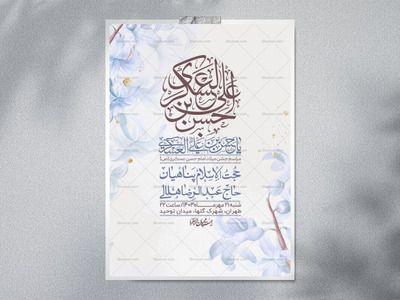 حسن بن علی العسکری
یا حسن بن علی العسکری
مراسم جشن میلاد امام حسن عسکری (ص)
حجت الاسلام پناهیان
حاج عبدالرضا هلالی
شنبه ۲۱ مهرماه ۱۴۰۳ / ساعت ۲۲
طهران، شهرک گلها، میدان توحید